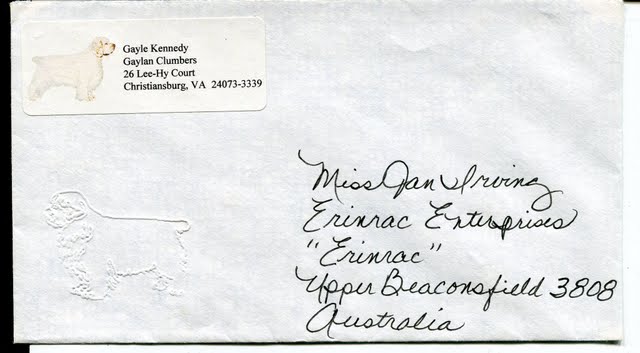 Gayle Kennedy
Gaylan Clumbers
26 Lee-Hy Court
Christiansburg, VA 24073-3339
Miss Jan Irving
Erinrac Enterprises
"Erinrac"
Upper Beaconsfield 3808
Australia